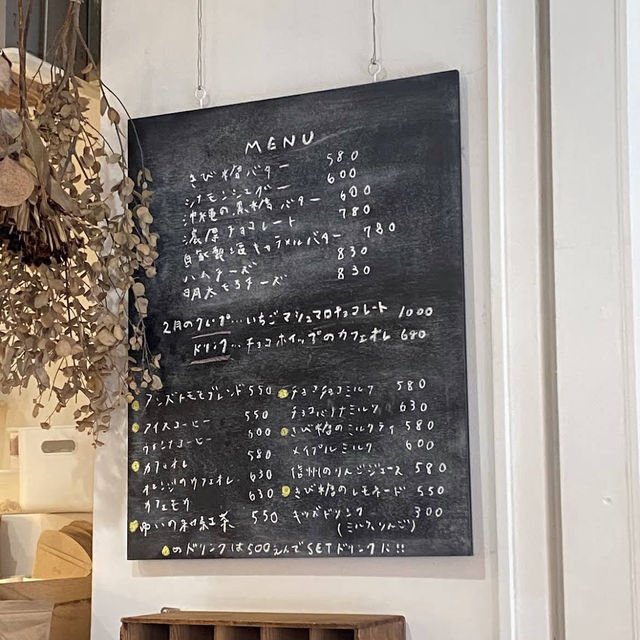 MENU
きび糖バター 580
シナモンシュガー 600
沖縄の黒糖バター 600
濃厚チョコレート 780
自家製塩キャラメルバター 780
ハムチーズ 830
明太もちチーズ 830
2月のクレープ…いちごマシュマロチョコレート 1000
ドリンク…チョコホイップのカフェオレ 680
ブレンド 550
アイスコーヒー 550
ウインナコーヒー 600
カフェオレ 580
オレンジカフェオレ 630
カフェモカ 630
和紅茶 550
チョコチョコミルク 580
チョコバナナミルク 630
きび糖のミルクティ 580
メイプルミルク 600
信州のりんごジュース 580
きび糖のレモネード 550
キッズドリンク 300
(ミルク、りんご)
のドリンクは500えんでSETドリンクに!!